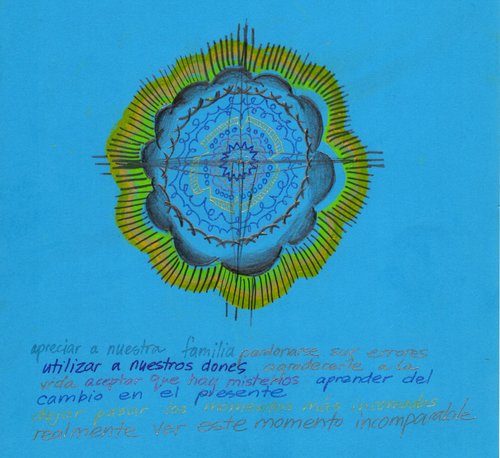 apreciar a nuestra familia perdonarse sus errores
utilizar a nuestros dones agradecerle a la
vida aceptar que hay misterios aprender del
cambio en el presente
dejar pasar los momentos más incomodos
realmente ver este momento incomparable